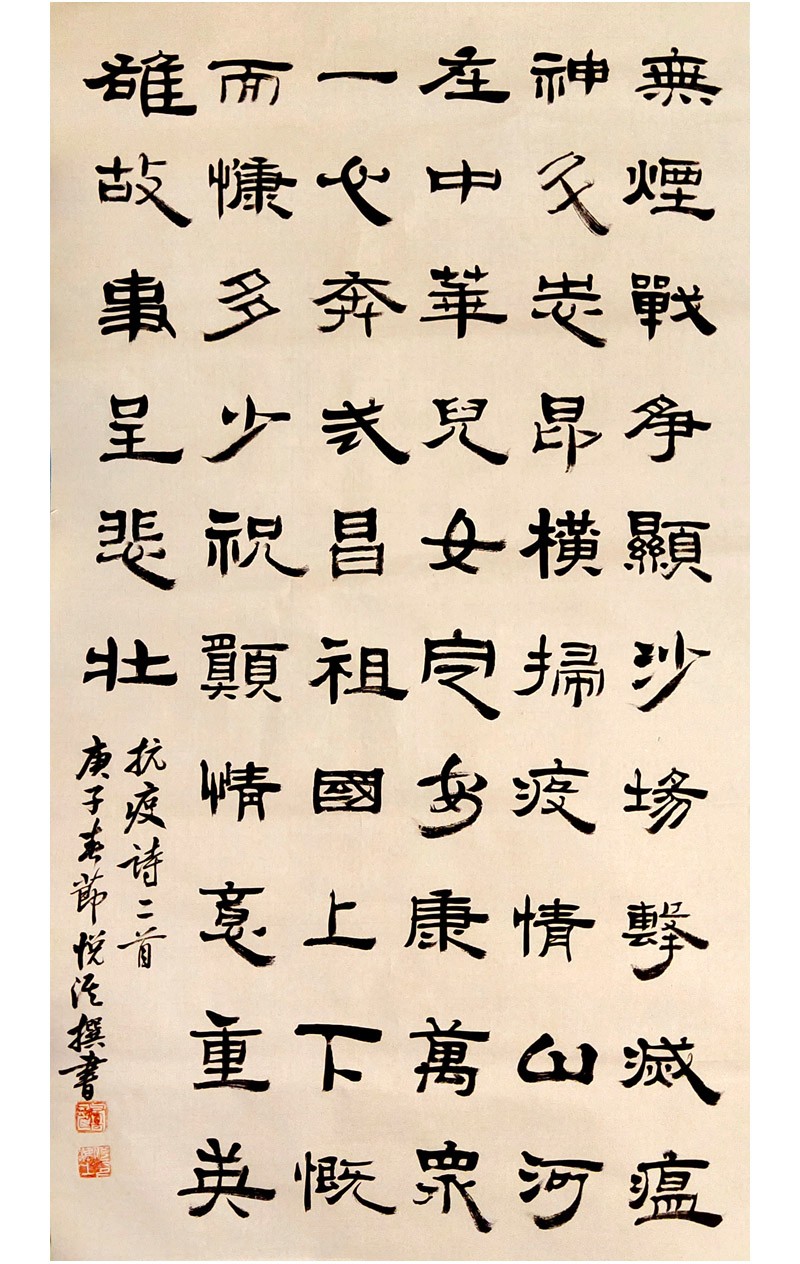 無煙戰爭顯沙場擊滅瘟
神志昂橫掃疫情山河
在中華兒女定安康萬衆
一心奔武昌祖國上下慨
而慷多少祝顠情意重英
雄故事呈悲壯
抗疫詩二首
庚子春節悅撰書